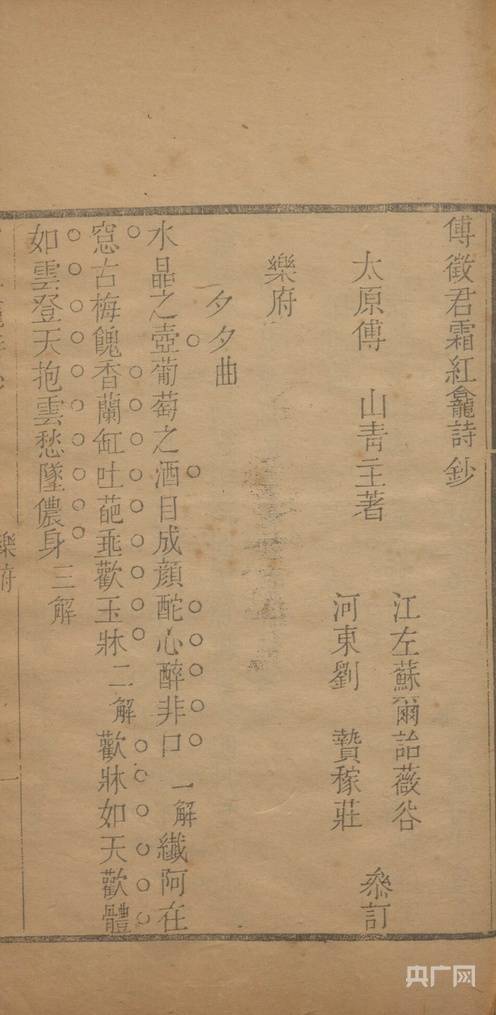 傅徵君霜紅龕詩鈔
太原傅　山青主著
江左蘇爾詒薇谷
河東劉　贄稼莊
叅訂
樂府
夕夕曲
水晶之壺葡萄之酒目成顔酡心醉非口一解纖阿在
窓古梅餽香蘭缸吐葩垂歡玉牀二解歡牀如天歡體
如雲登天抱雲愁墜儂身三解
樂府
一
央广网